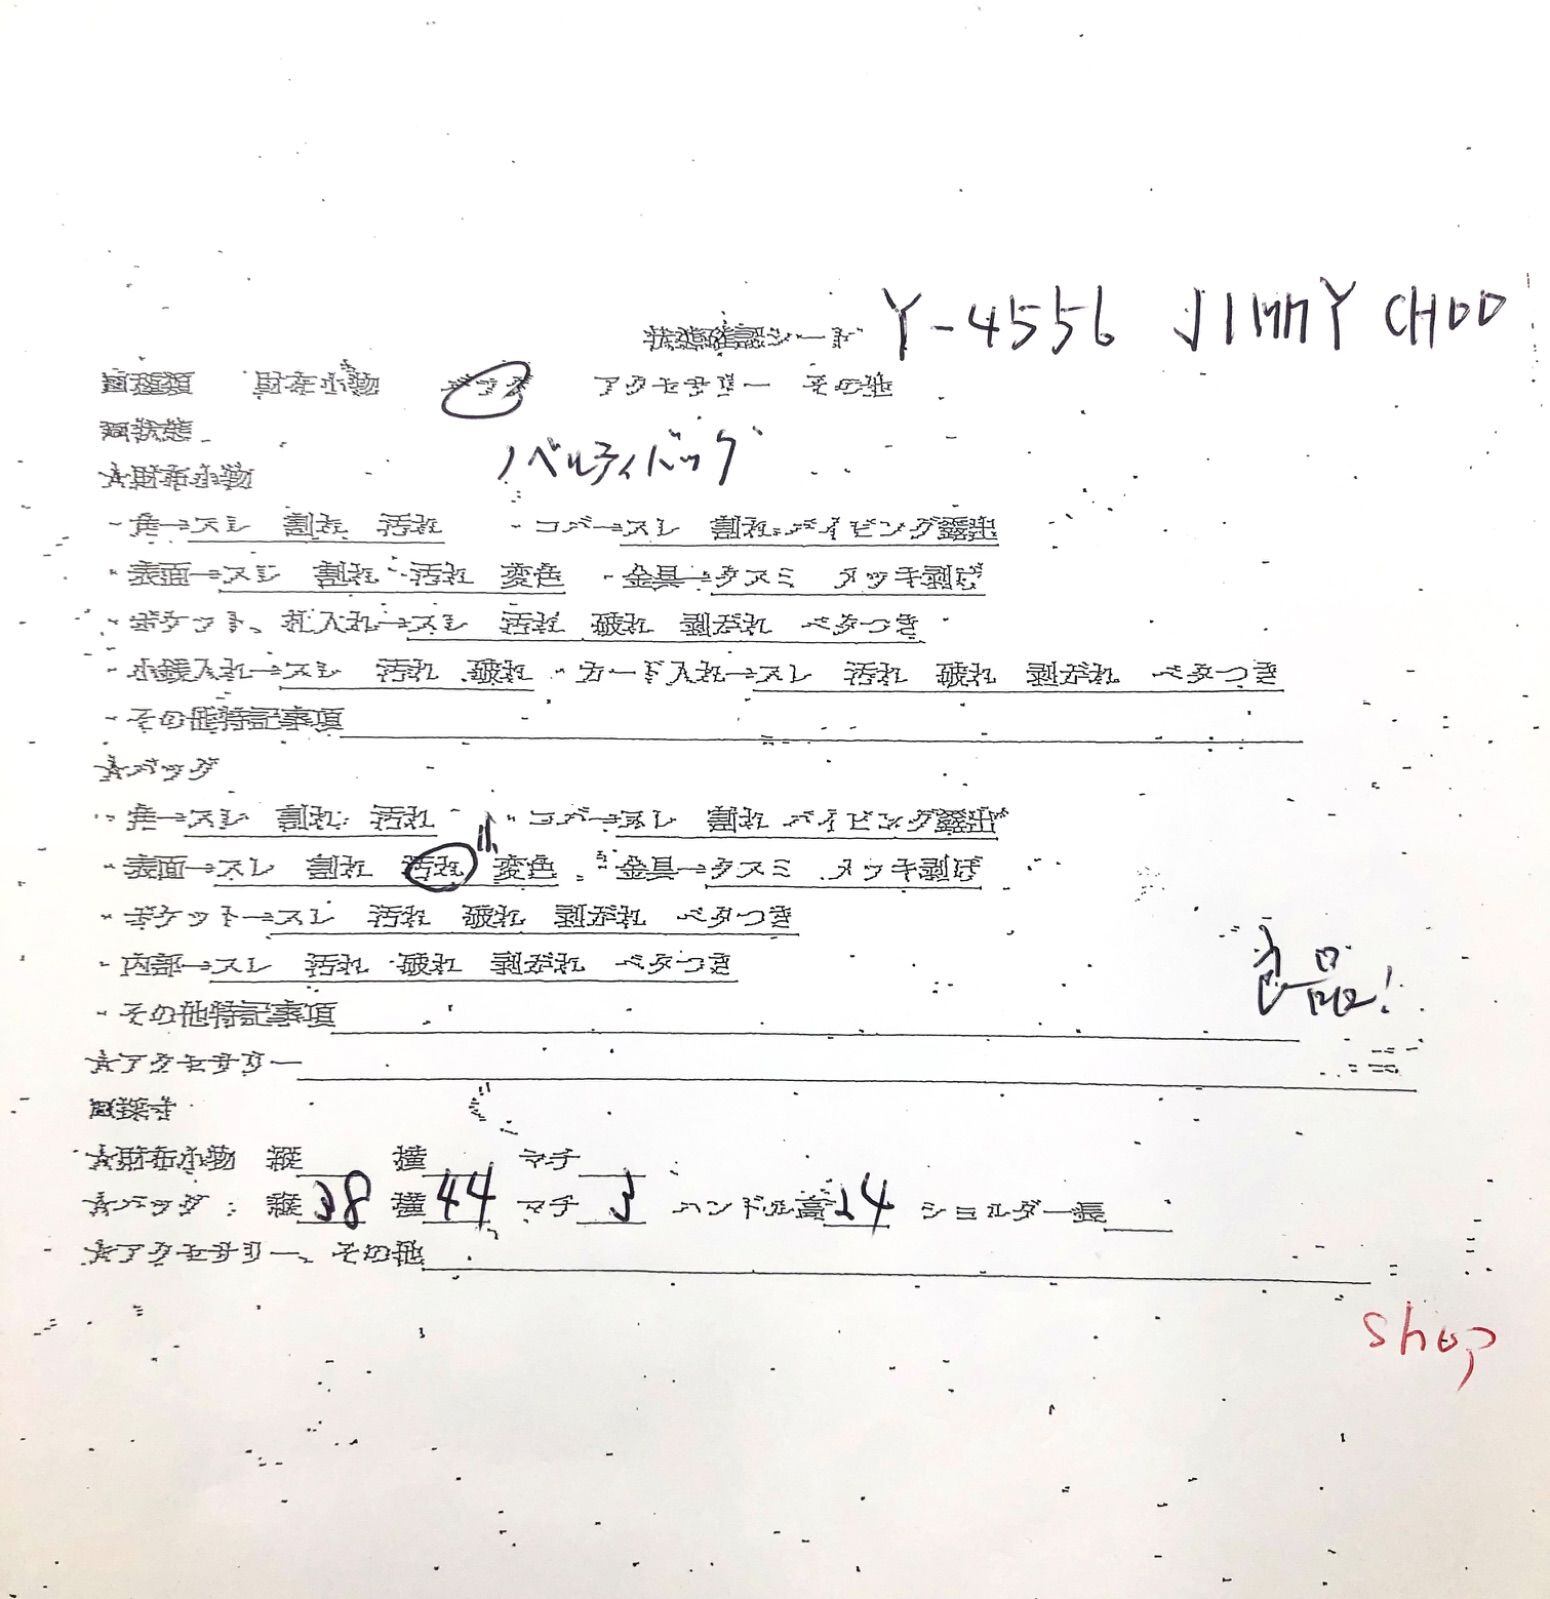 状態確認シート Y-4556 JIMMY CHOO
■種類 財布小物 バック アクセサリー その他
■状態
ノベルティバッグ
★財布小物
・角→スレ 割れ 汚れ ・コバ→スレ 割れ パイピング露出
・表面→スレ 割れ 汚れ 変色 ・金具→クスミ メッキ剥げ
・ポケット、札入れ→スレ 汚れ 破れ 剥がれ ベタつき
・小銭入れ→スレ 汚れ 破れ ・カード入れ→スレ 汚れ 破れ 剥がれ ベタつき
・その他特記事項
★バッグ
・角→スレ 割れ 汚れ ・コバ→スレ 割れ パイピング露出
・表面→スレ 割れ 汚れ 小 変色 ・金具→クスミ メッキ剥げ
・ポケット→スレ 汚れ 破れ 剥がれ ベタつき
・内部→スレ 汚れ 破れ 剥がれ ベタつき
良品!
・その他特記事項
★アクセサリー
■採寸
★財布小物 縦 横 マチ
★バッグ : 縦38 横44 マチ3 ハンドル高24 ショルダー長
★アクセサリー、その他
shop